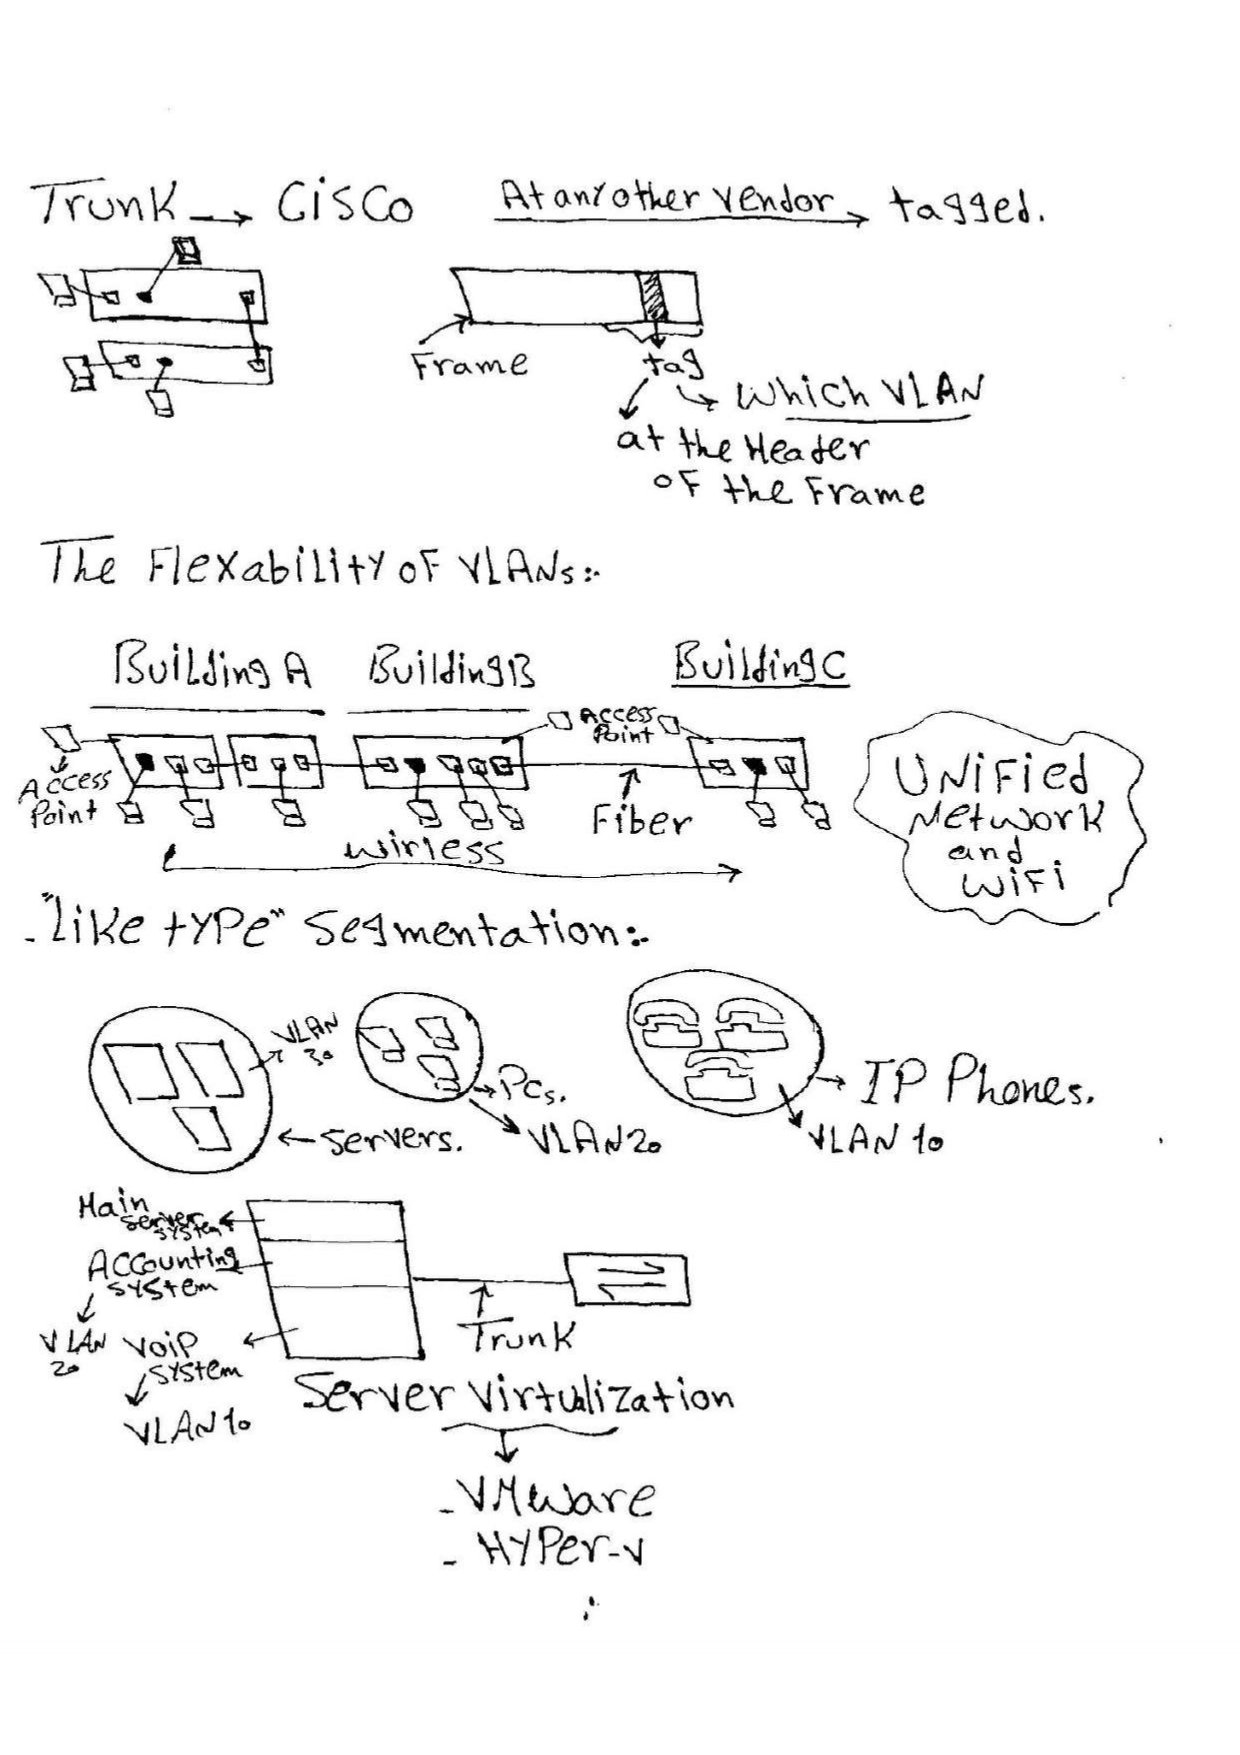 Trunk → Cisco At any other vendor → tagged.
Frame
tag
which VLAN
at the Header
of the Frame
The Flexability of VLANs:-
Building A Building B Building C
Access
Point
Access
Point
Fiber
wirless
UNified
Network
and
WiFi
- "Like type" Segmentation:-
VLAN
30
PCs.
VLAN 20
← Servers.
IP Phones.
VLAN 10
Main
server
system
Accounting
system
VLAN
20
VoiP
system
VLAN 10
Trunk
Server Virtulization
- VMware
- HYPer-V